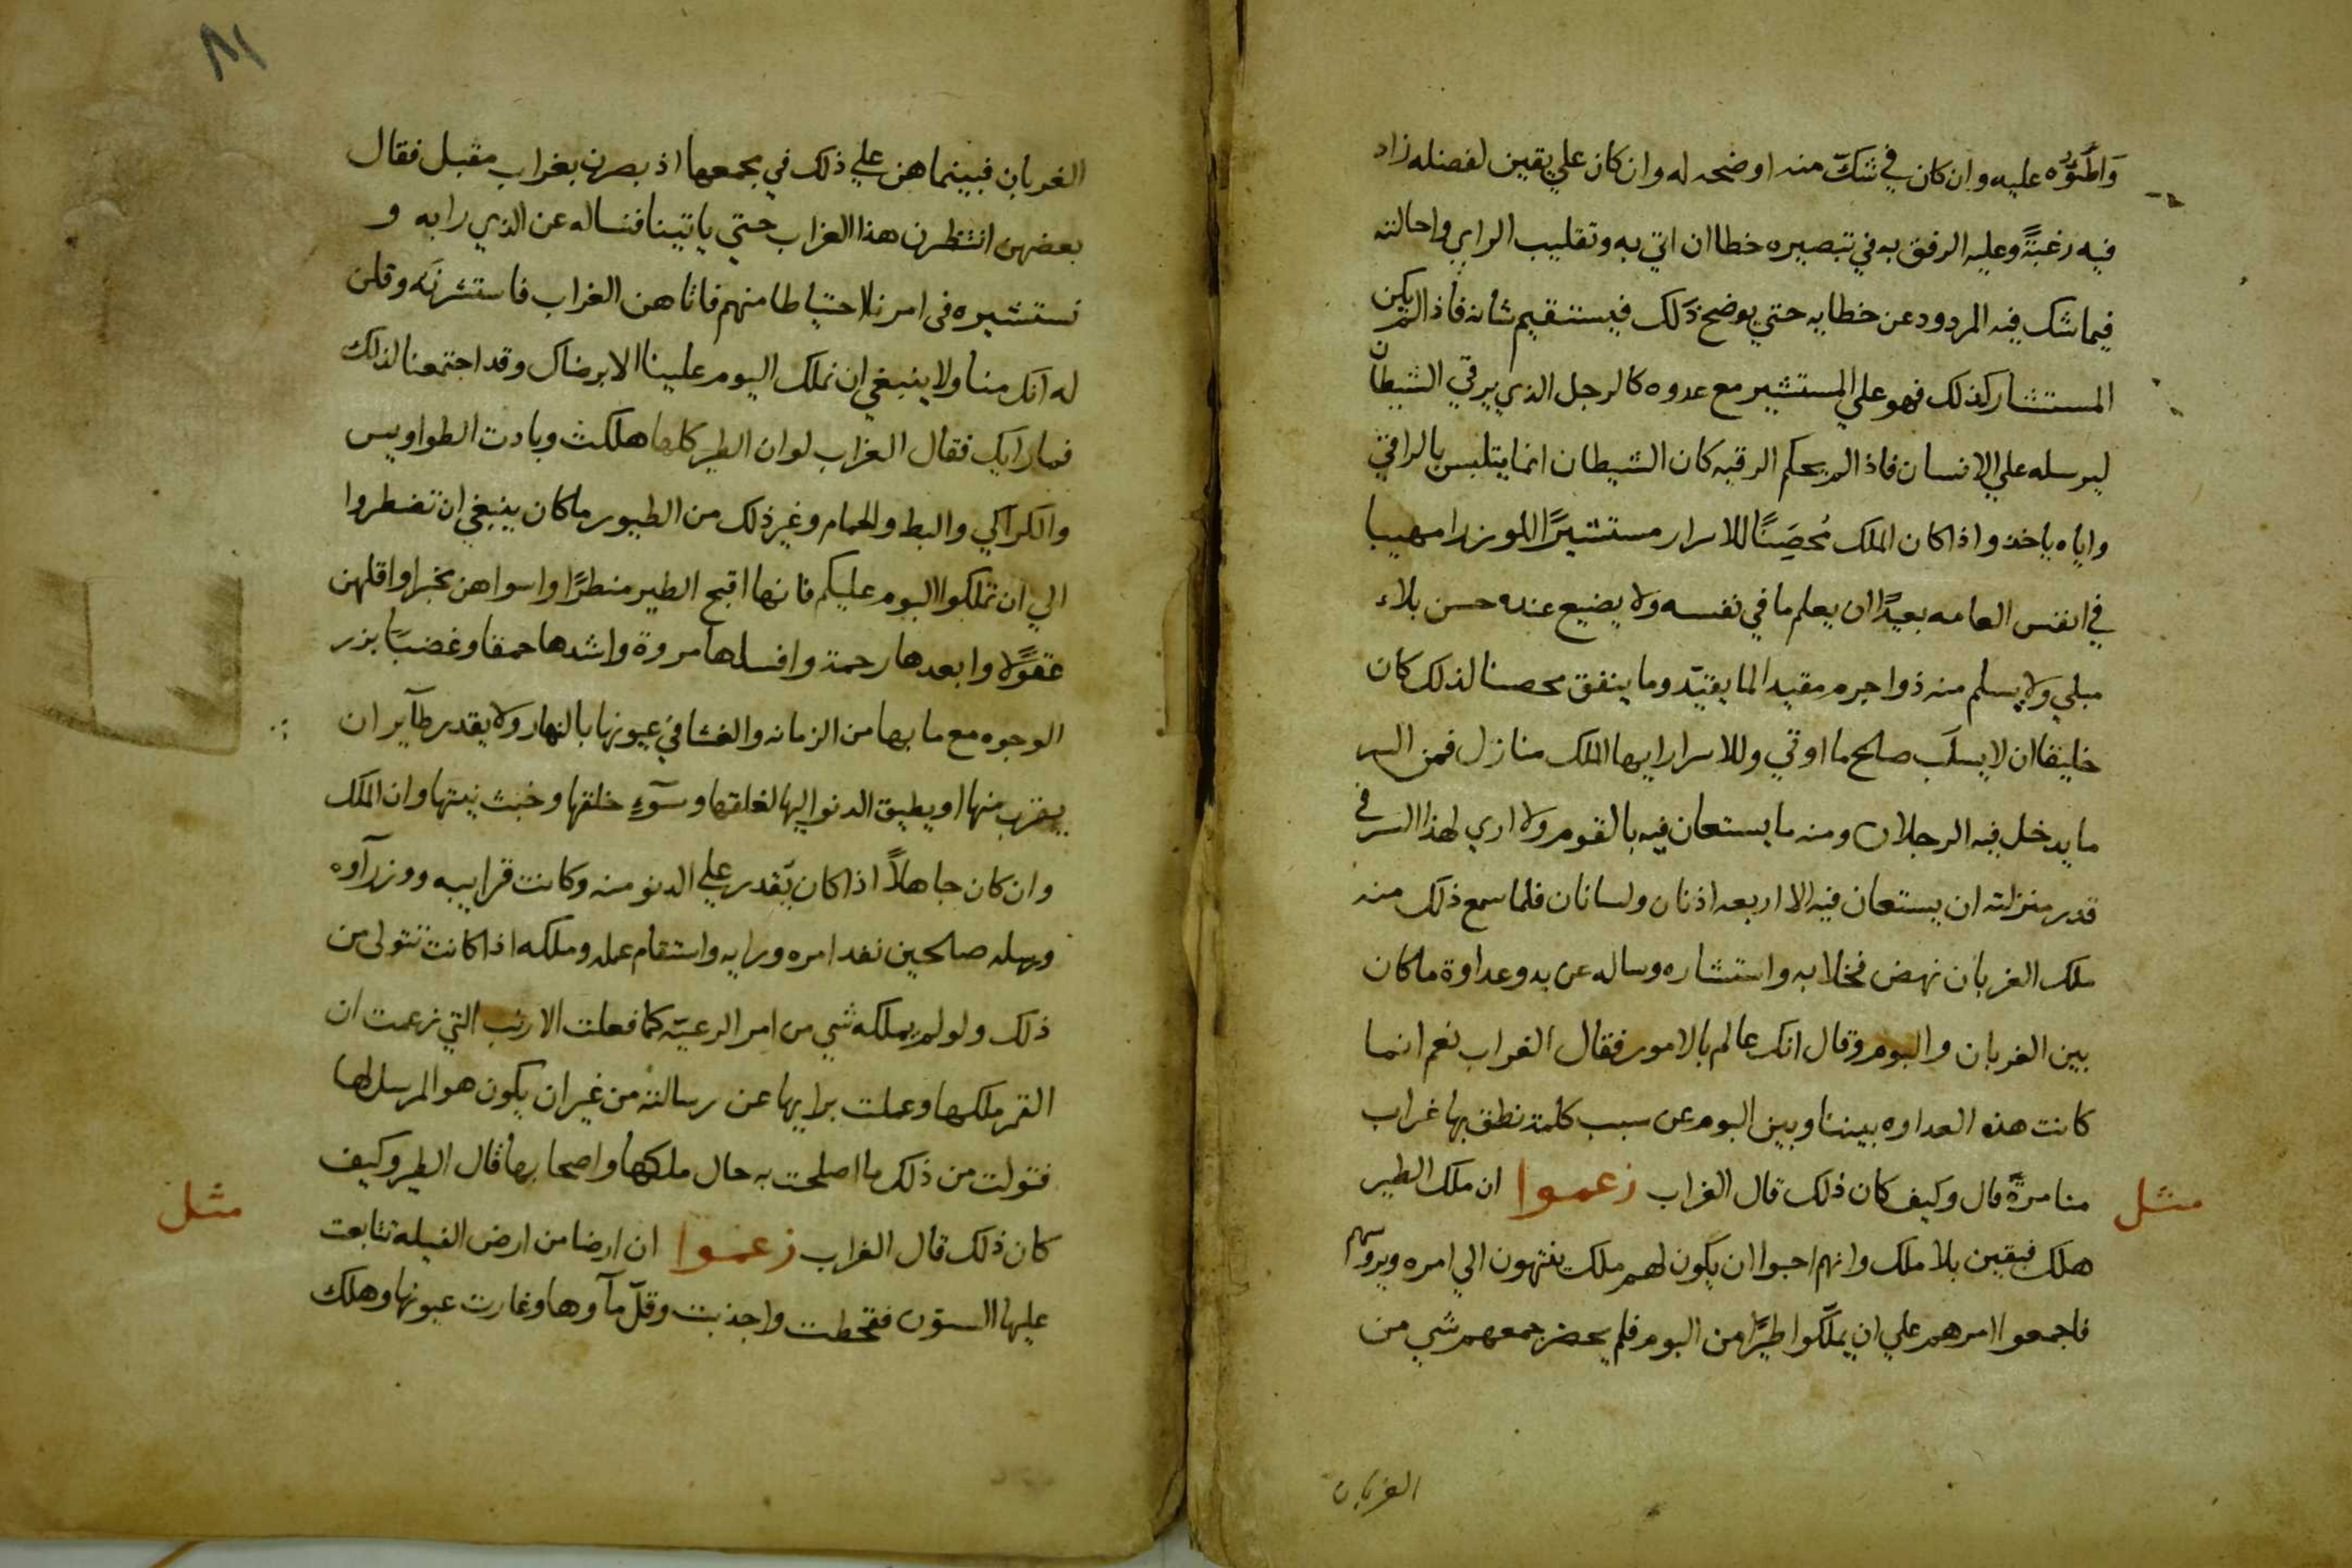 واطوره عليه وان كان في شك منه اوضحه له وان كان علي يقين لفضله زاد
فيه رغبةً وعليه الرفق به في تبصيره خطا ان اتي به وتقليب الراي واحالته
فيما شك فيه المردود عن خطايه حتي يوضح ذلك فيستقيم شانه فاذا لم يكن
المستشار كذلك فهو علي المستشير مع عدوه كالرجل الذي يرقي الشيطان
ليرسله علي الانسان فاذا لم يحكم الرقيه كان الشيطان انما يتلبس بالراقي
واياه ياخذ واذا كان الملك مُحصِنًا للاسرار مستشيرًا للوزرا مهيبا
في انفس العامه بعيدًا ان يعلم ما في نفسه ولا يضيع عنده حسن بلاء
مبلي ولا يسلم منه ذوا جرم مقيد الما يقيّد وما ينفق محصنا لذلك كان
خليقا ان لا يسلَب صلح ما اوتي وللاسرار ايها الملك منازل فمن السر
ما يدخل فيه الرجلان ومنه ما يستعان فيه بالقوم ولا اري لهذا السر في
قدر منزلته ان يستعان فيه الا اربعه اذنان ولسانان فلما سمع ذلك منه
ملك الغربان نهض فخلا به واستشاره وساله عن بدو عداوة ما كان
بين الغربان والبوم وقال انك عالم بالامور فقال الغراب نعم انما
كانت هذه العداوه بيننا وبين البوم عن سبب كلمة نطق بها غراب
منا مرةً قال وكيف كان ذلك قال الغراب زعموا ان ملك الطير
مثل
هلك فبقين بلا ملك وانهم احبوا ان يكون لهم ملك ينتهون الي امره ويروسهم
فاجمعوا امرهم علي ان يملّكوا طيرًا من البوم فلم يحضر جمعهم شي من
الغربان
الغربان فبينما هن علي ذلك في مجمعها اذ بصرن بغراب مقبل فقال
بعضهن انتظرن هذا الغراب حتي ياتينا فنساله عن الذي رايه و
نستشيره في امرنا احتياطا منهم فاتاهن الغراب فاستشرنه وقلن
له انك منا ولا ينبغي ان نملك اليوم علينا الا برضاك وقد اجتمعنا لذلك
فما رايك فقال الغراب لو ان الطير كلها هلكت وبادت الطواويس
والكراكي والبط والحمام وغير ذلك من الطيور ما كان ينبغي ان تضطروا
الي ان تملكوا البوم عليكم فانها اقبح الطير منطرًا واسواهن مخبرا واقلهن
عقولًا وابعدها رحمة وافسلها مروة واشدها حمقا وغضبًا بزر
الوجوه مع ما بها من الزمانه والغشا في عيونها بالنهار ولا يقدر طآير ان
يقرب منها او يطيق الدنو اليها لغلقها وسوٓءِ خلقها وخبث نيتها وان الملك
وان كان جاهلًا اذا كان يَقدر علي الدنو منه وكانت قرايبه ووزرآوه
ورسله صالحين نفد امره ورايه واستقام عمله وملكه اذا كانت تتولى من
ذلك ولو لم يملكه شي من امر الرعيّه كما فعلت الارنب التي زعمت ان
القمر ملكها وعملت برايها عن رسالته من غير ان يكون هو المرسل لها
فتولت من ذلك ما اصلحت به حال ملكها واصحابها قال الطير وكيف
كان ذلك قال الغراب زعموا ان ارضا من ارض الفيله تتابعت
مثل
عليها السنون فقحطت واجذبت وقلّ مآوها وغارت عيونها وهلك